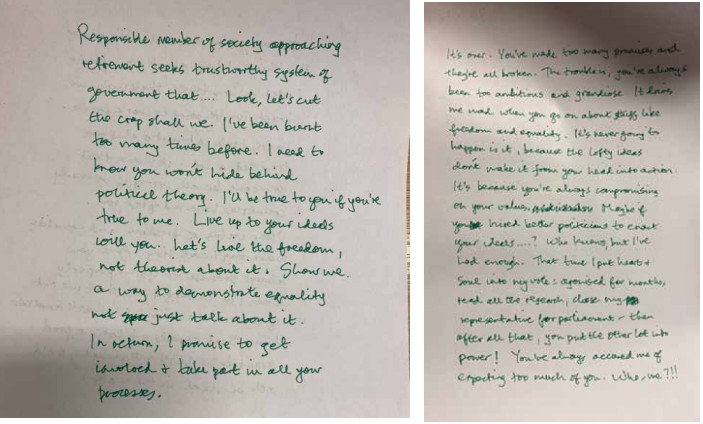 Responsible member of society approaching
retirement seeks trustworthy system of
government that.... Look, let's cut
the crap shall we. I've been burnt
too many times before. I need to
know you won't hide behind
political theory. I'll be true to you if you're
true to me. Live up to your ideals
will you. Let's live the freedom,
not theorise about it. Show me
a way to demonstrate equality
not just talk about it.
In return, I promise to get
involved + take part in all your
processes.
It's over. You've made too many promises and
they're all broken. The trouble is, you've always
been too ambitious and grandiose. It drives
me mad when you go on about stuff like
freedom and equality. It's never going to
happen is it, because the lofty ideas
don't make it from your head into action.
It's because you're always compromising
on your values. Maybe if
you hired better politicians to enact
your ideals....? Who knows, but I've
had enough. That time I put heart +
soul into my vote: agonised for months,
read all the research, chose my
representative for parliament - then
after all that, you put the other lot into
power! You've always accused me of
expecting too much of you. Who, me?!!!